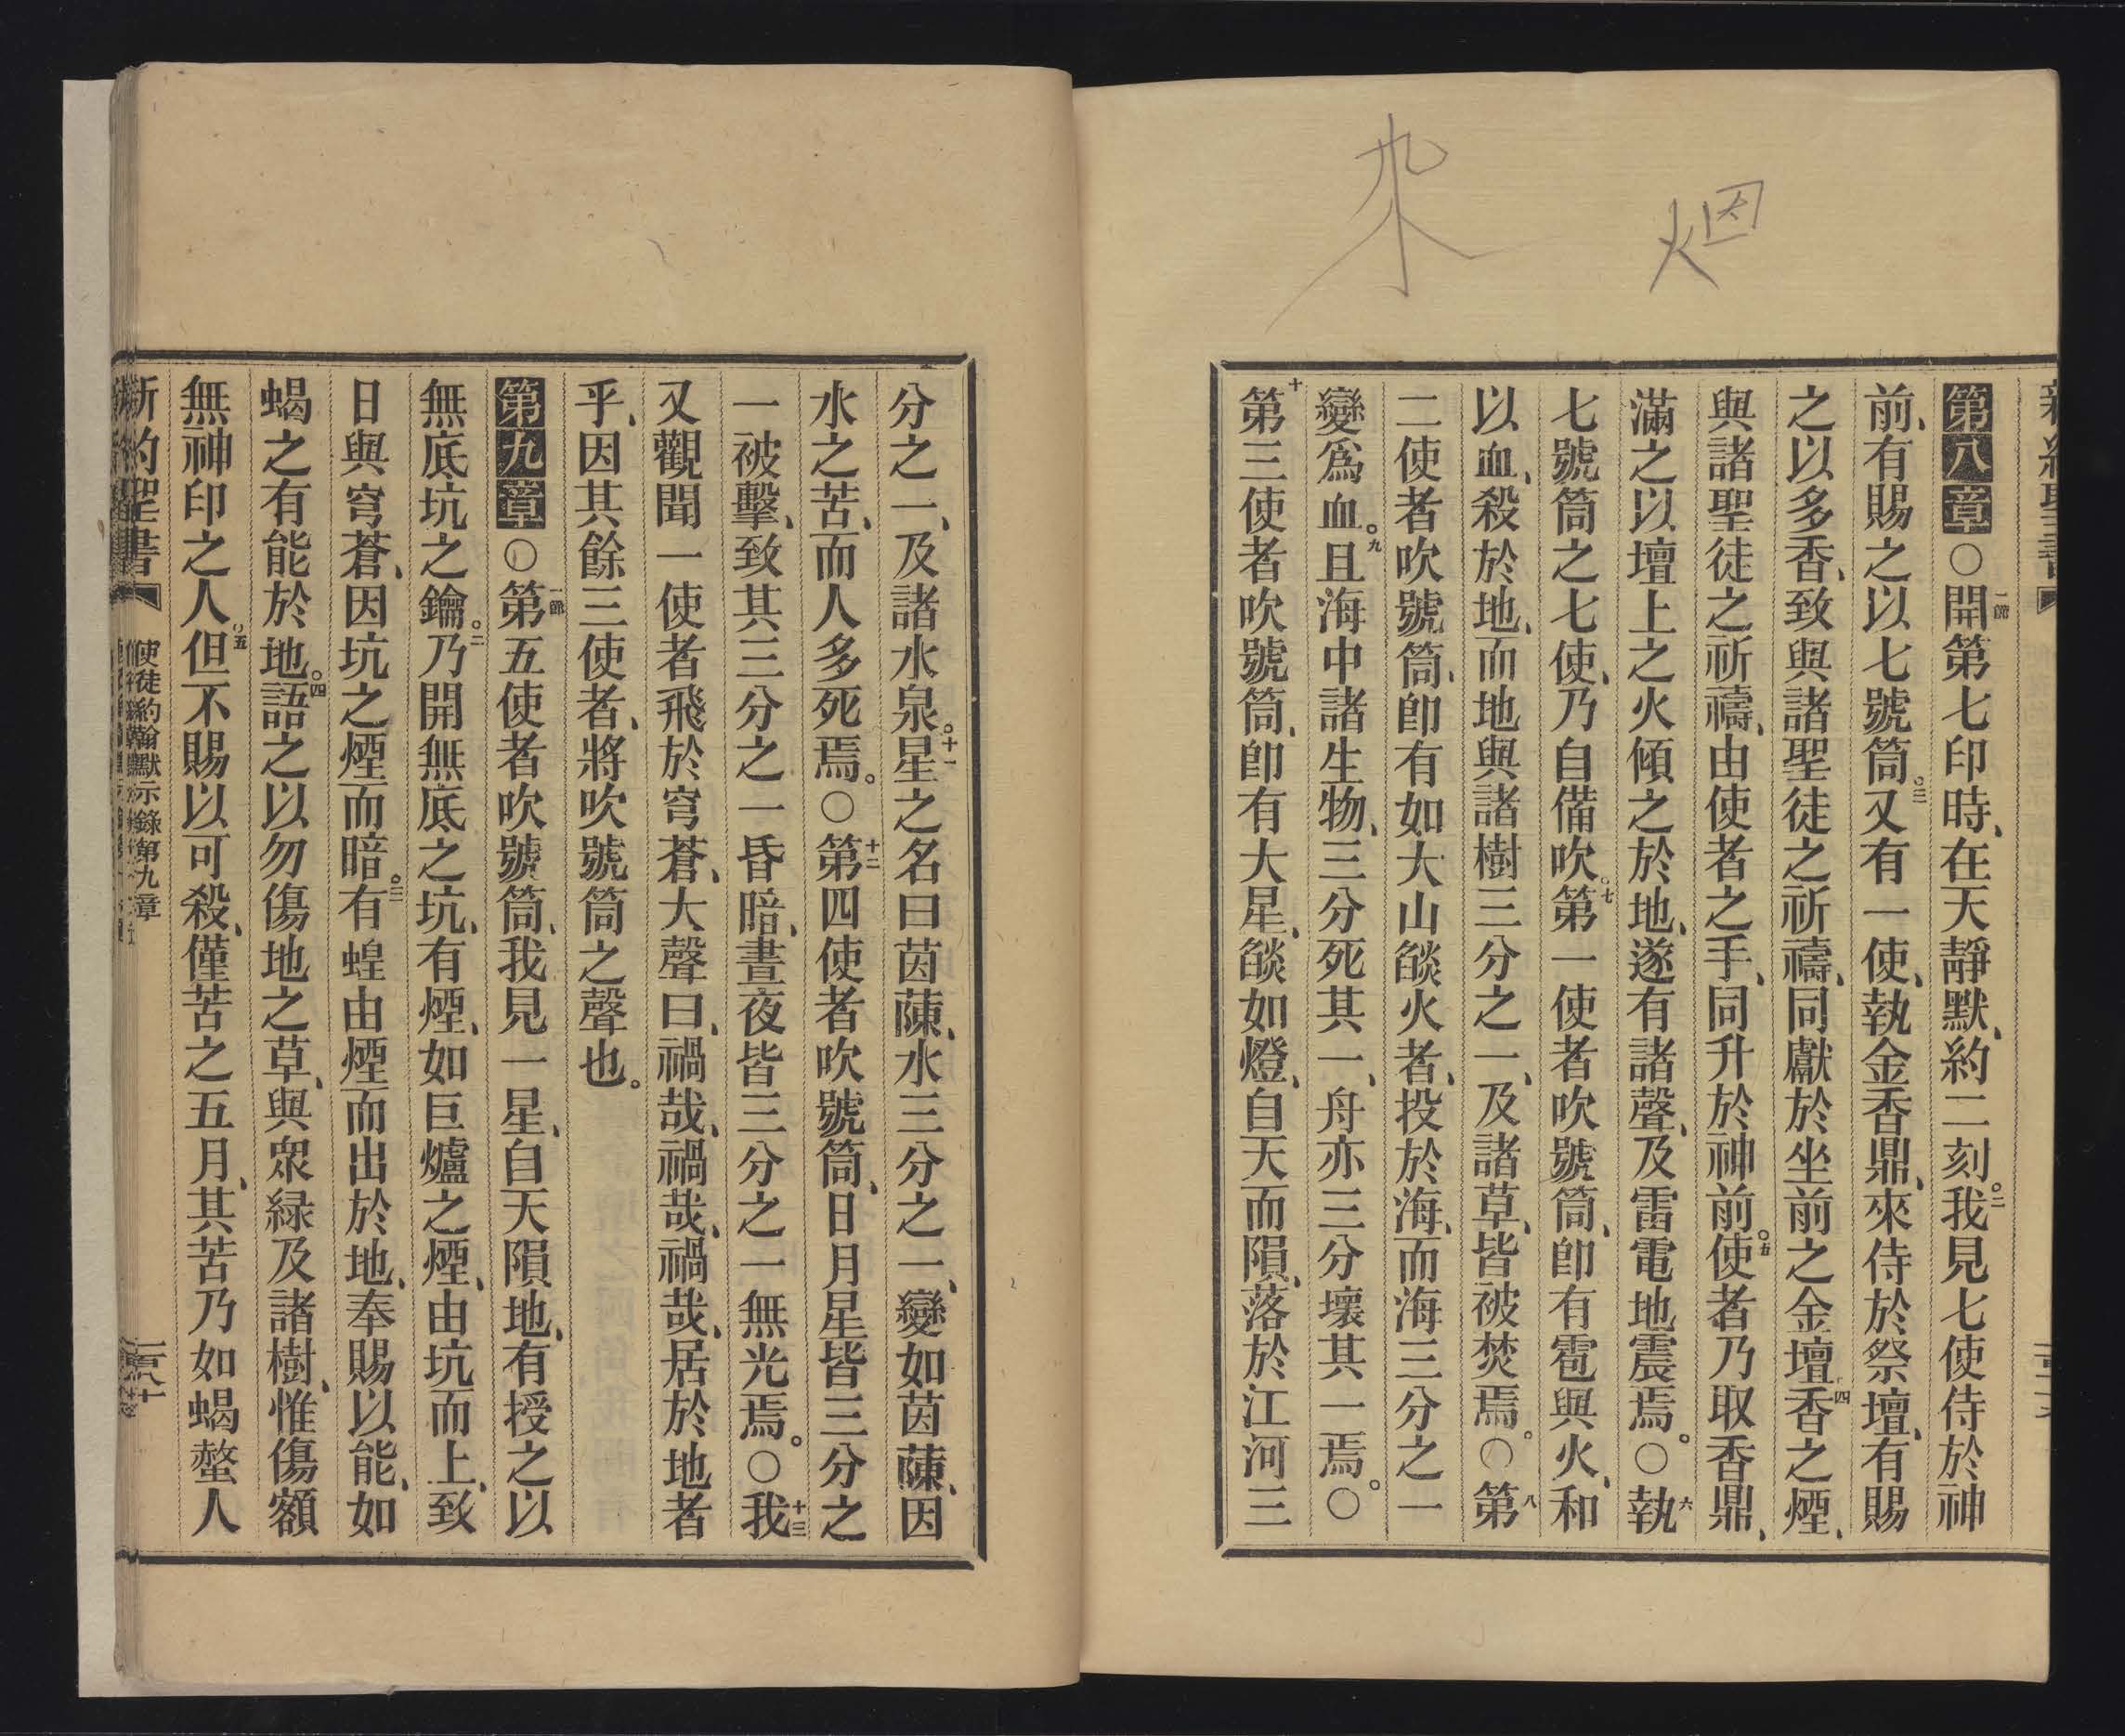 烟
第八章○一節開第七印時、在天靜默、約二刻。二我見七使侍於神
前、有賜之以七號筒。三又有一使、執金香鼎、來侍於祭壇、有賜
之以多香、致與諸聖徒之祈禱、同獻於坐前之金壇。四香之煙、
與諸聖徒之祈禱、由使者之手、同升於神前。五使者乃取香鼎、
滿之以壇上之火傾之於地、遂有諸聲、及雷電地震焉。○六執
七號筒之七使、乃自備吹。七第一使者吹號筒、卽有雹與火、和
以血、殺於地、而地與諸樹三分之一、及諸草、皆被焚焉。○八第
二使者吹號筒、卽有如大山燄火者、投於海、而海三分之一
變爲血。九且海中諸生物、三分死其一、舟亦三分壞其一焉。○
十第三使者吹號筒、卽有大星、燄如燈、自天而隕、落於江河三
分之一、及諸水泉。十一星之名曰茵蔯、水三分之一、變如茵蔯、因
水之苦、而人多死焉。○十二第四使者吹號筒、日月星皆三分之
一被擊、致其三分之一昏暗、晝夜皆三分之一無光焉。○十三我
又觀聞一使者飛於穹蒼、大聲曰、禍哉、禍哉、禍哉、居於地者
乎、因其餘三使者、將吹號筒之聲也。
第九章○一節第五使者吹號筒、我見一星、自天隕地、有授之以
無底坑之鑰。二乃開無底之坑、有煙、如巨爐之煙、由坑而上、致
日與穹蒼、因坑之煙而暗。三有蝗由煙而出於地、奉賜以能、如
蝎之有能於地。四語之以勿傷地之草、與眾綠及諸樹、惟傷額
無神印之人。五但不賜以可殺、僅苦之五月、其苦乃如蝎螫人
新約聖書 使徒約翰默示錄第九章